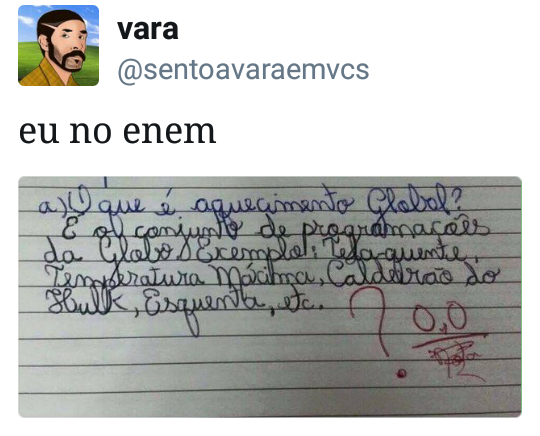 vara
@sentoavaraemvcs
eu no enem
a) O que é aquecimento Global?
É o conjunto de programações
da Globo. Exemplo: Tela-quente,
Temperatura Mácima, Caldeirão do
Hulk, Esquenta, etc.
? 0,0